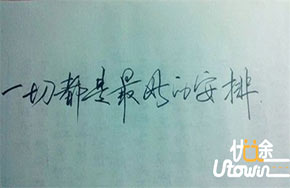 一切都是最好的安排
优余
Utown